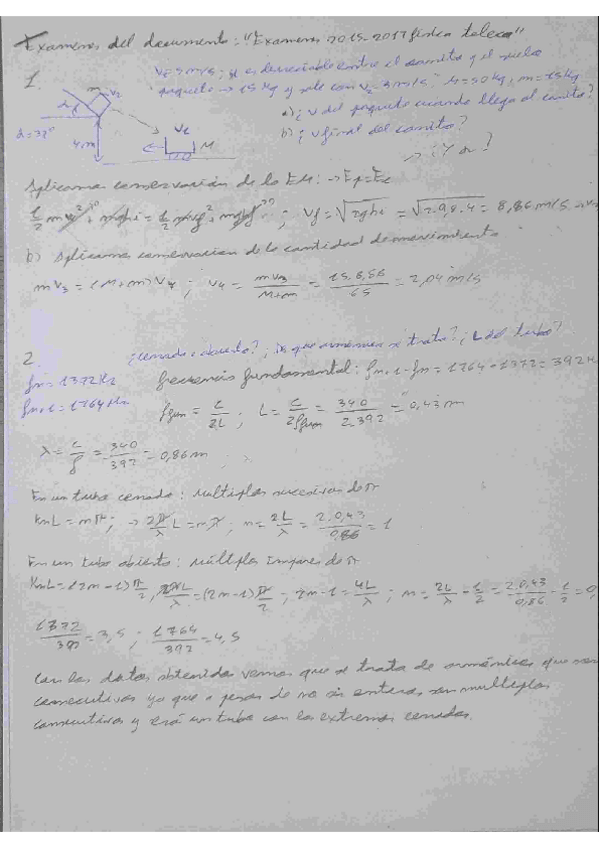 Examenes del documento: "Examenes 2015-2017 física teleco"
1.
m
v₂
α=37º
4m
M
paquete → 15 kg y sale con v₂ 3 m/s? M=50 kg; m=15 kg
a) ¿v del paquete cuando llega al carrito?
b) ¿v final del carrito?
Aplicamos conservación de la EM: → Ep=Ec
Vf=√2ghi = √2·9,8·4 = 8,86 m/s
b) Aplicamos conservación de la cantidad de movimiento
m v₃ = (M+m) V₄ ; v₄ = m v₃ / M+m = 15·8,86 / 65 = 2,04 m/s
2. ¿cerrado o abierto? ¿De que armónicos se trata? ¿L del tubo?
fn=1372 Hz
frecuencia fundamental: fn+1-fn = 1764-1372 = 392 H
fn+1=1764 Hz
ffun = c/2L ; L = c/2ffun = 340/2·392 = 0,43 m
λ = c/f = 340/392 = 0,86 m
En un tubo cerrado: Múltiplos sucesivos de π
KnL = nπ ; → 2π/λ L = nπ ; n = 2L/λ = 2·0,43/0,86 = 1
En un tubo abierto: Múltiplos impares de π
KnL = (2n-1) π/2 ; 2πL/λ = (2n-1) π/2 ; 2n-1 = 4L/λ ; n = 2L/λ - 1/2 = 2·0,43/0,86 - 1/2 = 0,
1372/392 = 3,5 ; 1764/392 = 4,5
Con los datos obtenidos vemos que se trata de armónicos que son
consecutivos ya que a pesar de no ser enteros, son multiplos
consecutivos y será un tubo con los extremos cerrados.